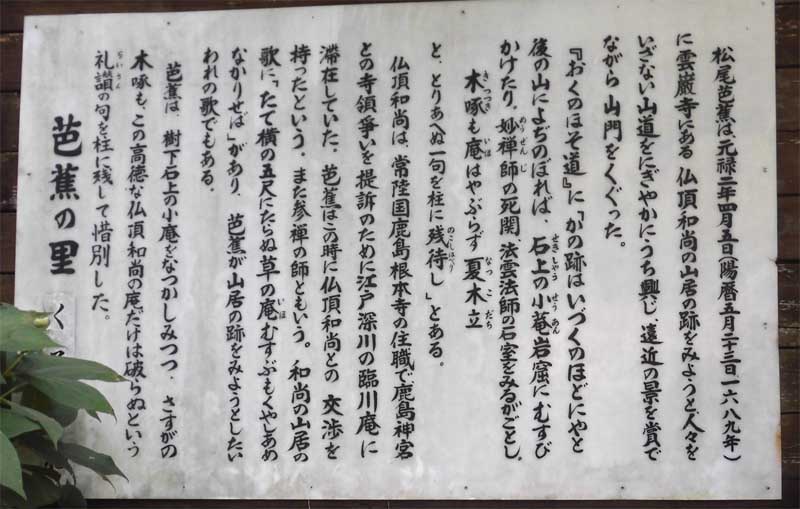 松尾芭蕉は、元禄二年四月五日(陽暦五月二十三日一六八九年)
に雲巌寺にある仏頂和尚の山居の跡をみようと人々を
いざない山道をにぎやかにうち興じ、遠近の景を賞で
ながら山門をくぐった。
『おくのほそ道』に「かの跡はいづくのほどにやと
後の山によぢのぼれば、石上の小菴岩窟にむすび
かけたり。妙禅師の死関、法雲法師の石室をみるがごとし。
木啄も庵はやぶらず夏木立
と、とりあへぬ一句を柱に残待し」とある。
仏頂和尚は、常陸国鹿島根本寺の住職で鹿島神宮
との寺領爭いを提訴のために江戸深川の臨川庵に
滞在していた。芭蕉はこの時に仏頂和尚との交渉を
持ったという。また参禅の師ともいう。和尚の山居の
歌に、「たて横の五尺にたらぬ草の庵むすぶもくやしあめ
なかりせば」があり、芭蕉が山居の跡をみようとしたい
われの歌でもある。
芭蕉は、樹下石上の小庵をなつかしみつつ、さすがの
木啄も、この高徳な仏頂和尚の庵だけは破らぬという
礼讃の句を柱に残して惜別した。
芭蕉の里 く